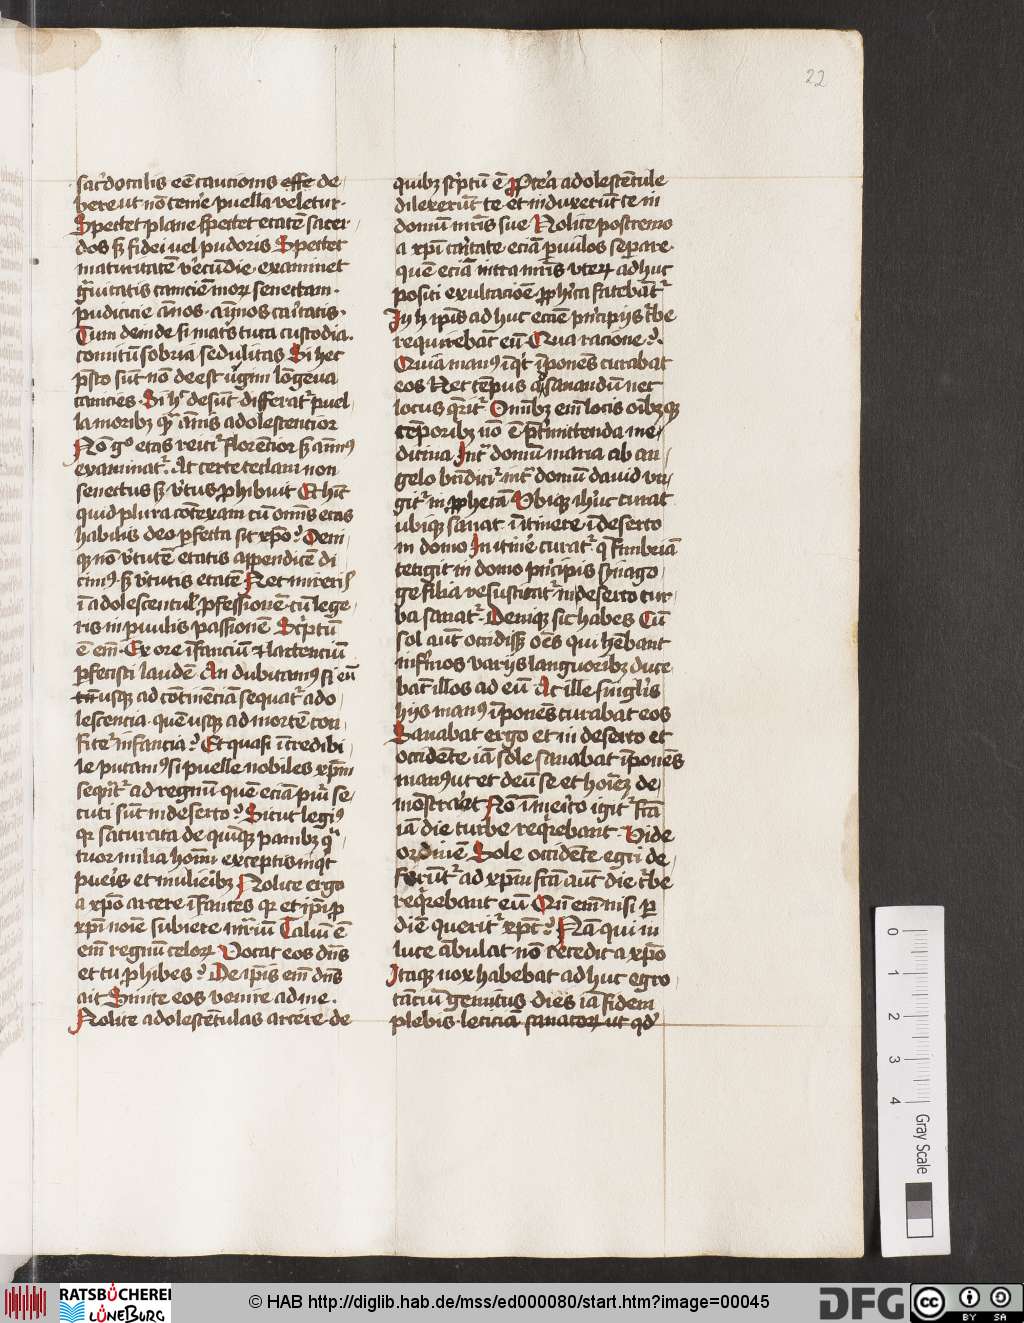 22
sac̓dotalis eē cautionis effe de
bere ut nō tem̄e puella veletur·
Spectet plane spectet etatē sacer
dos sꝫ fidei uel pudoris Spectet
maturitatē v̓ecūdie· examinet
g̓uitatis camciē moꝝ senectam·
pudicicie ānos· aīnos caritatis·
Tum deinde si matris tuta custodia·
comitū sobria sedulitas Si hec
p̄sto sūt nō deest v̓gini lōgeua
canicies· Si h̓ desūt differat᷑ puel
la moribꝫ q̓ ānis adolescentior
Nō gͦ etas reicit᷑ florencior sꝫ anim᷒
examinat᷑· At certe teclam non
senectus sꝫ v̓tus ꝓbauit Et hūc
quid plura cōtexam cū om̄is etas
habilis deo ꝑfecta sit xp̄o? Deni
qꝫ nō v̓tutē etatis appendicē di
cim᷒· sꝫ v̓tutis etatē Nec mireris
ī adolescentul᷑ ꝓfessionē· cū lege
ris in puulis passionē Sc̓ptū
ē em̄· Ex ore īfanciū et lactenciū
ꝑfecisti laudē An dubitam᷒ si eū
usqꝫ ad cōtinēciā sequat᷑ ado
lescencia· quē usqꝫ ad mortē con
fitet᷑ infancia? Et quasi īcredibi
le putam᷒ si puelle nobiles xp̄m
seqn̄t᷑ ad regnū quē eciā pu̓i se
cuti sūt in deserto? Sicut legim᷒
qr̄ saturata de quīqꝫ panibꝫ q̓
tuor milia homī exceptis inqt̄
pueris et mulieribꝫ Nolite ergo
a xp̄o arcere īfantes qr̄ et ip̄i ꝓ
xp̄i noīe subiere mr̄iū Taliū ē
em̄ regnū celoꝝ Vocat eos dn̄s
et tu ꝓhibes? De ip̄is em̄ dn̄s
ait Sinite eos venire ad me·
Nolite adolescētulas arcere de
quibꝫ sc̓ptū ē Ppterea adolescētule
dilexerūt te et induxerūt te in
domū mr̄is sue Nolite postremo
a xp̄i caritate eciā puulos separe·
quē eciā intra mr̄is vterꝫ adhuc
positi exultacioē ꝓphetica fatebāt᷑
In h ip̄is adhuc eccīe pn̓cipijs t᷑be
requirebāt eū· Qua racione?·
Quia man᷒ īqt̄ īponēs curabat
eos Nec tēpus qd̓ sanandū nec
locus q̄rit᷑ Omībꝫ em̄ locis oībꝫqꝫ
tēporibꝫ nō ē p̄t̓mittenda me
dicina Int̓ domū maria ab an
gelo bn̄dicit᷑ int̓ domū dauid vn
git᷑ in ꝓphetā Vbiqꝫ ih̄uc curat
ubiqꝫ sanat· ī itinere ī deserto
in domo In itin̓e curat᷑ q̄ fimbriā
tetigit in domo prīcipis synago
ge filia resuscitat᷑ in deserto tur
ba sanat᷑· Deniqꝫ sic habes Cū
sol aūt occidissꝫ oēs qui hēbant
infirmos varijs languoribꝫ duce
bāt illos ad eū· At ille singl̓is
hijs man᷒ īponēs curabat eos
Sanabat ergo et in deserto et
occidēte iā sole sanabat īponēs
man᷒ ut et deū se et hoīeꝫ de
mōstraret Nō īmerito igit᷑ fcā
iā die turbe reqrebant· Vide
ordinē Sole occidēte egri de
ferūt᷑ ad xp̄m fcā aūt die t᷑be
reqrebant eū Qn̄ em̄ nisi ꝑ
diē querit᷑ xp̄c? Nā qui in
luce ābulat nō recedit a xp̄o
Itaqꝫ nox habebat adhuc egro
tāciū gemitus· dies iā fidem
plebis· leticiā sanatoꝝ ut qd̓
0
1
2
3
4
Gray Scale
RATSBÜCHEREI
LÜNEBURG
© HAB http://diglib.hab.de/mss/ed000080/start.htm?image=00045
DFG
cc
BY SA